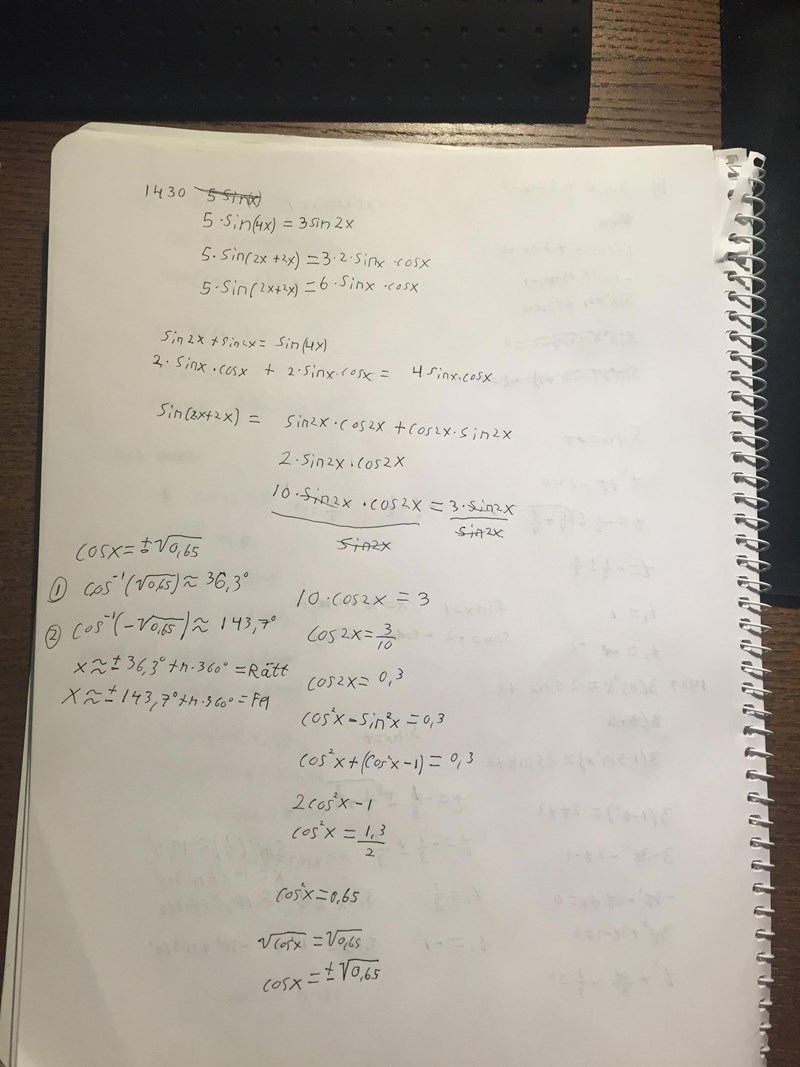 1430 5 sin(x)
5·sin(4x) = 3sin2x
5·sin(2x+2x) = 3·2·sinx·cosx
5·sin(2x+2x) = 6·sinx·cosx
sin2x + sin2x = sin(4x)
2·sinx·cosx + 2·sinx·cosx = 4sinx·cosx
sin(2x+2x) = sin2x·cos2x + cos2x·sin2x
2·sin2x·cos2x
10·sin2x·cos2x = 3·sin2x
sin2x sin2x
cosx = ±√0,65
① cos⁻¹(√0,65) ≈ 36,3°
② cos⁻¹(-√0,65) ≈ 143,7°
x ≈ ±36,3° + n·360° = Rätt
x ≈ ±143,7° + n·360° = Fel
10·cos2x = 3
cos2x = 3/10
cos2x = 0,3
cos²x - sin²x = 0,3
cos²x + (cos²x - 1) = 0,3
2cos²x - 1
cos²x = 1,3/2
cos²x = 0,65
√cos²x = √0,65
cosx = ±√0,65